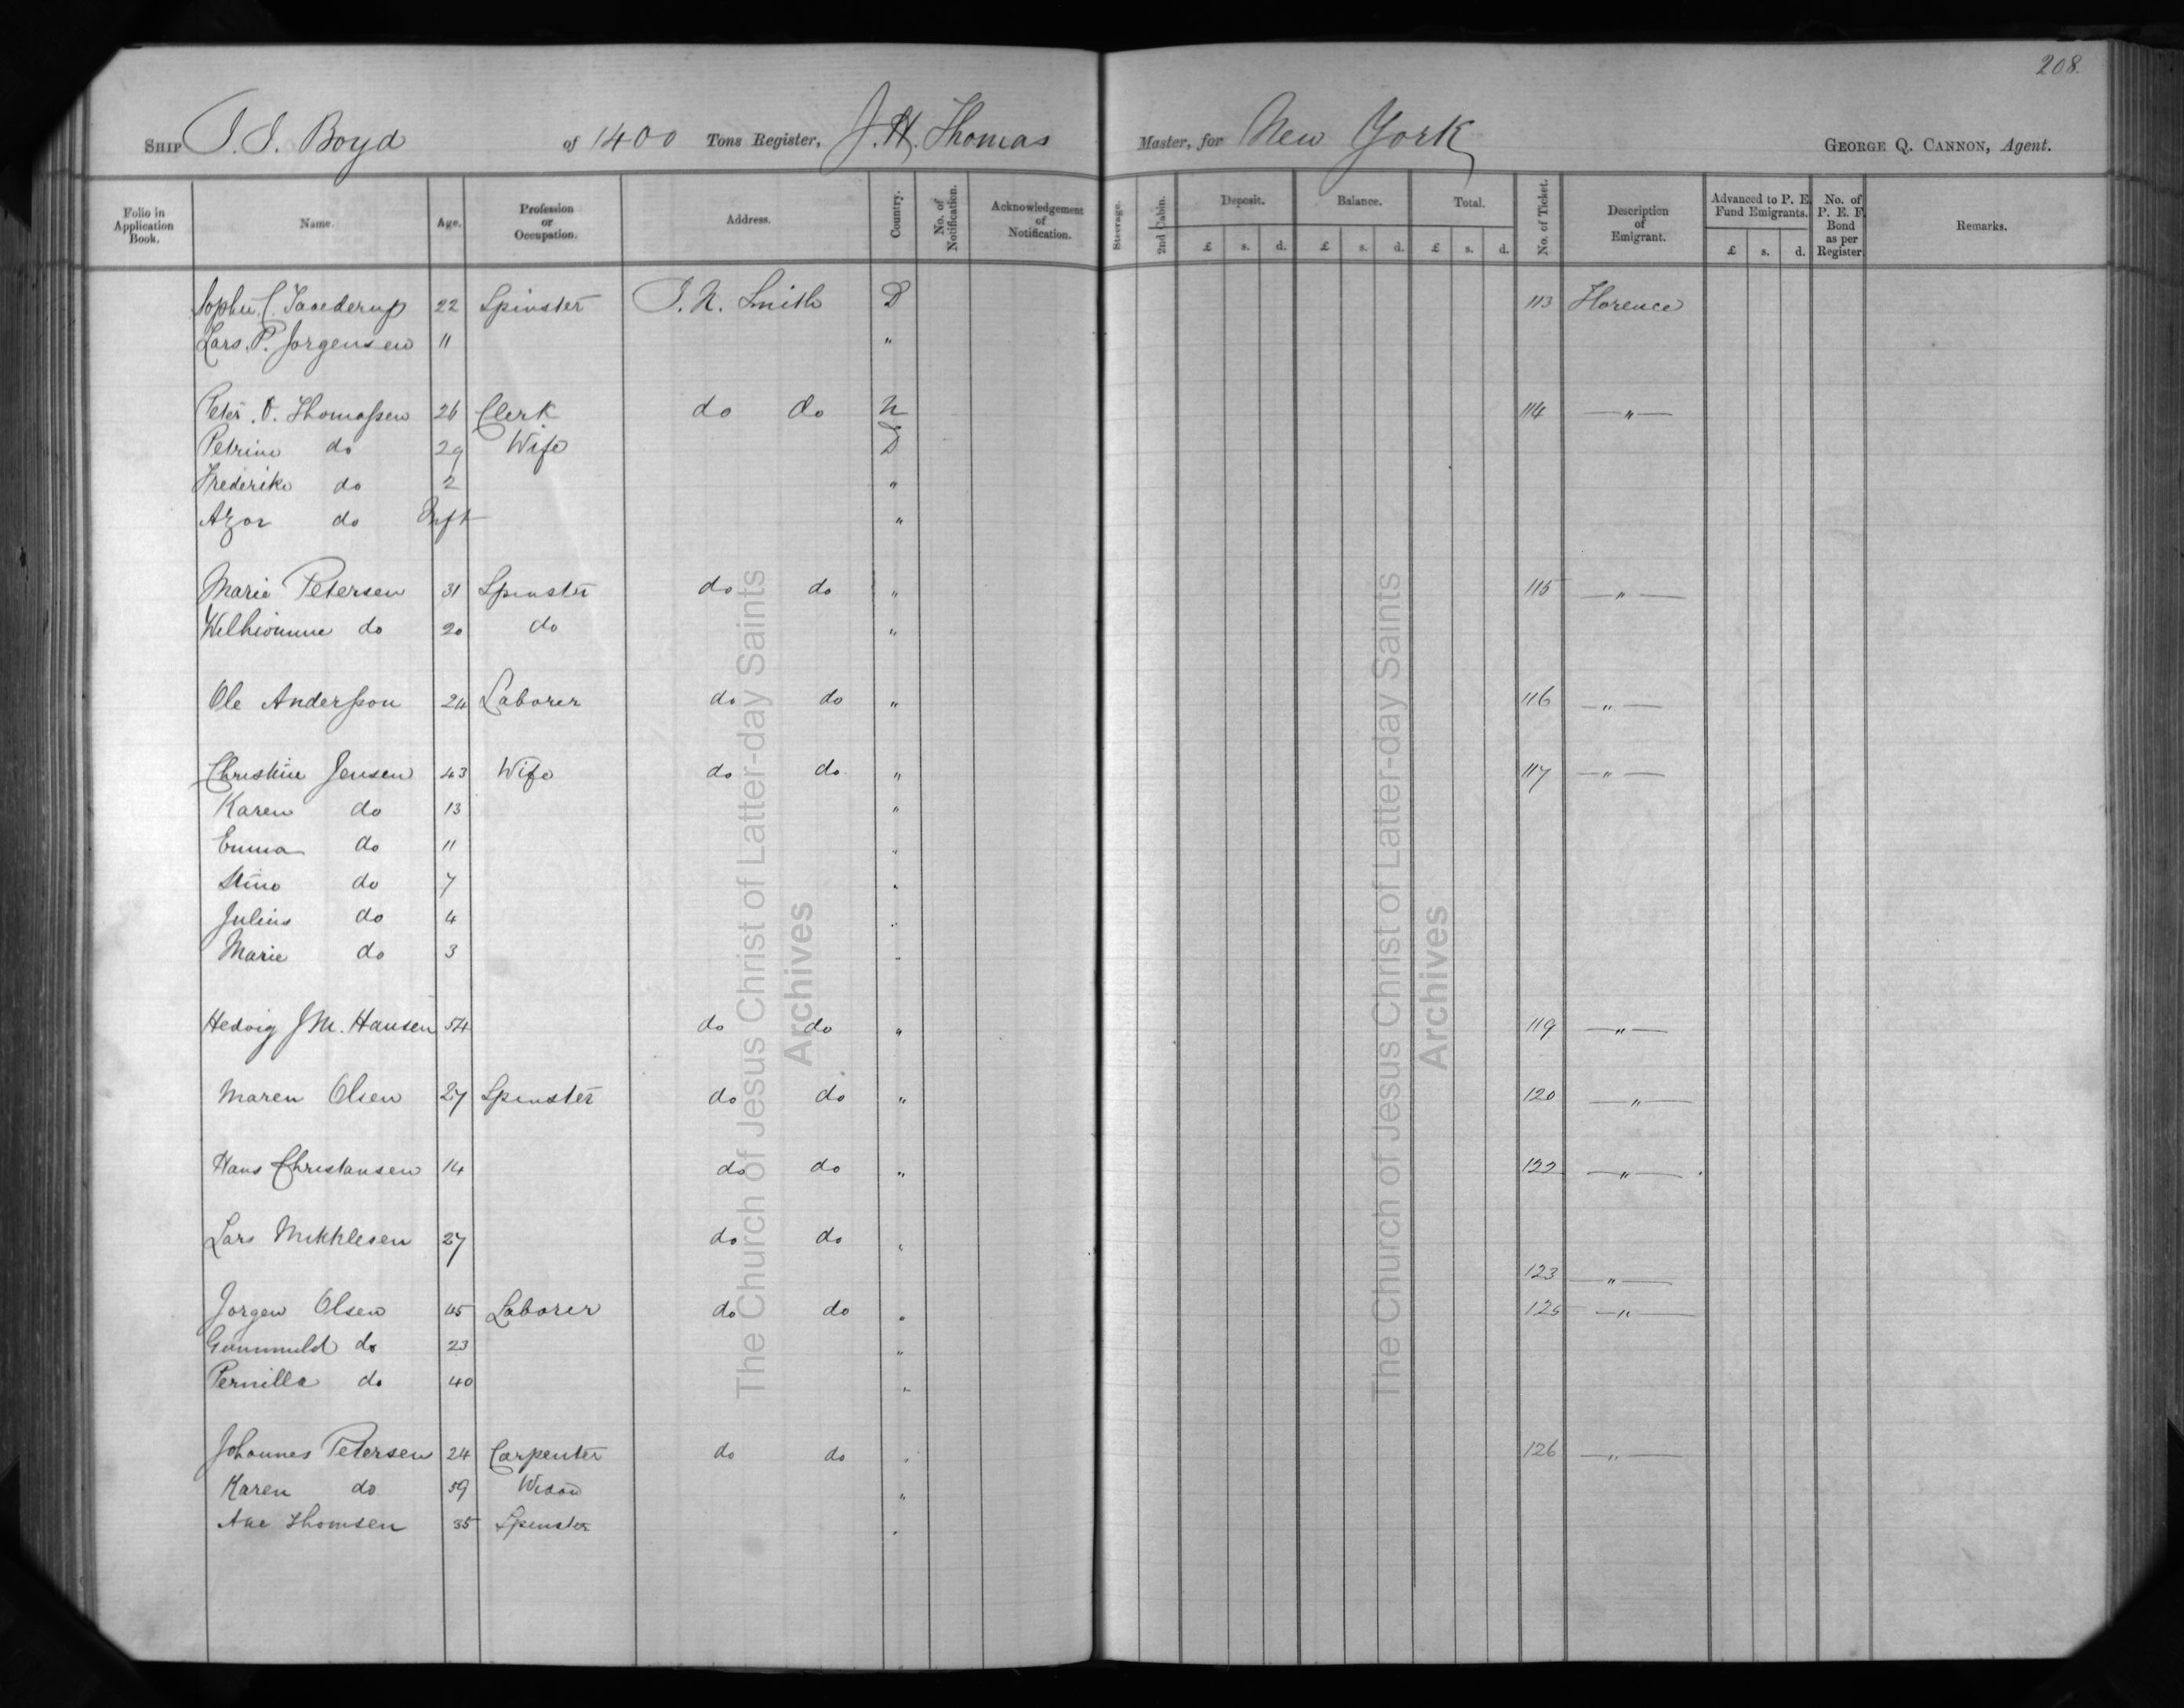 208.
SHIP J. J. Boyd of 1400 Tons Register, J. H. Thomas Master, for New York GEORGE Q. CANNON, Agent.
Folio in Application Book. Name. Age. Profession or Occupation. Address. Country. No. of Notification. Acknowledgement of Notification. Steerage. 2nd Cabin. Deposit. Balance. Total. No. of Ticket. Description of Emigrant. Advanced to P. E. Fund Emigrants. No. of P. E. F. Bond as per Register. Remarks.
£ s. d. £ s. d. £ s. d. £ s. d.
22 Spinster J. N. Smith D 113 Florence
Lars P. Jorgensen 11 "
Peter O. Thomassen 26 Clerk do do N 114 — " —
Petrine do 29 Wife D
Frederike do 2 "
Azor do Inft "
Marie Petersen 31 Spinster do do " 115 — " —
do 20 do "
Ole Andersson 24 Laborer do do " 116 — " —
Christine Jensen 43 Wife do do " 117 — " —
Karen do 13 "
Emma do 11 "
Stine do 7 "
Julius do 4 "
Marie do 3 "
Hedvig J M. Hansen 54 do do " 119 — " —
Maren Olsen 27 Spinster do do " 120 — " —
Hans Christansen 14 do do " 122 — " —
Lars Mikhlesen 27 do do "
123 — " —
Jorgen Olsen 45 Laborer do do " 125 — " —
Gunnmuld do 23 "
Pernilla do 40 "
Johannes Petersen 24 Carpenter do do " 126 — " —
Karen do 59 Widow "
Ane Thomsen 35 Spinster "
The Church of Jesus Christ of Latter-day Saints
Archives
The Church of Jesus Christ of Latter-day Saints
Archives